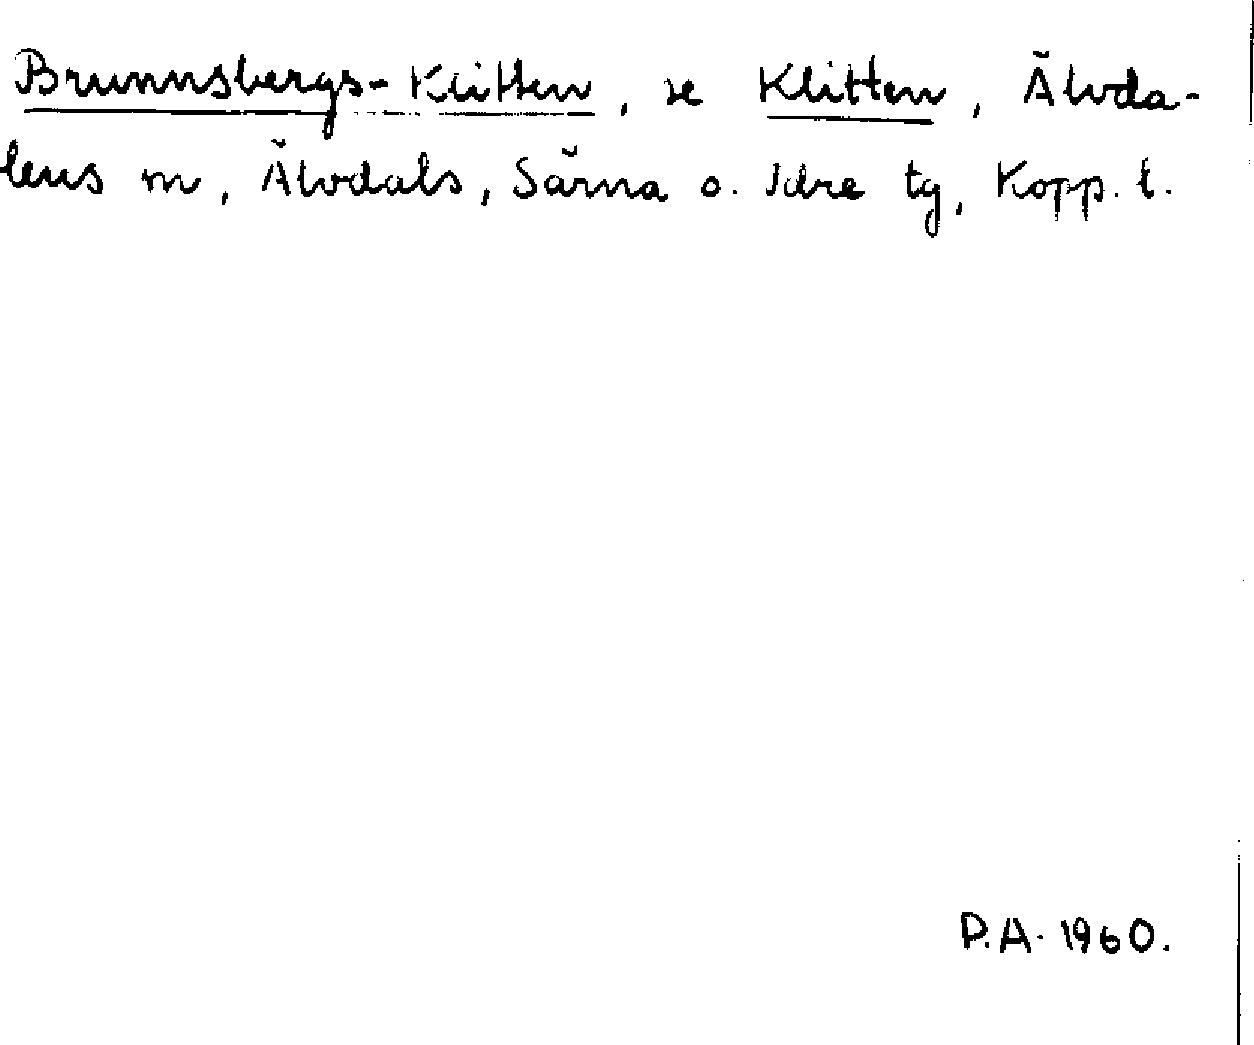 Brunnsbergs-Klitten, se Klitten, Älvda-
lens m, Älvdals, Särna o. Idre tg, Kopp. l.
P.A. 1960.